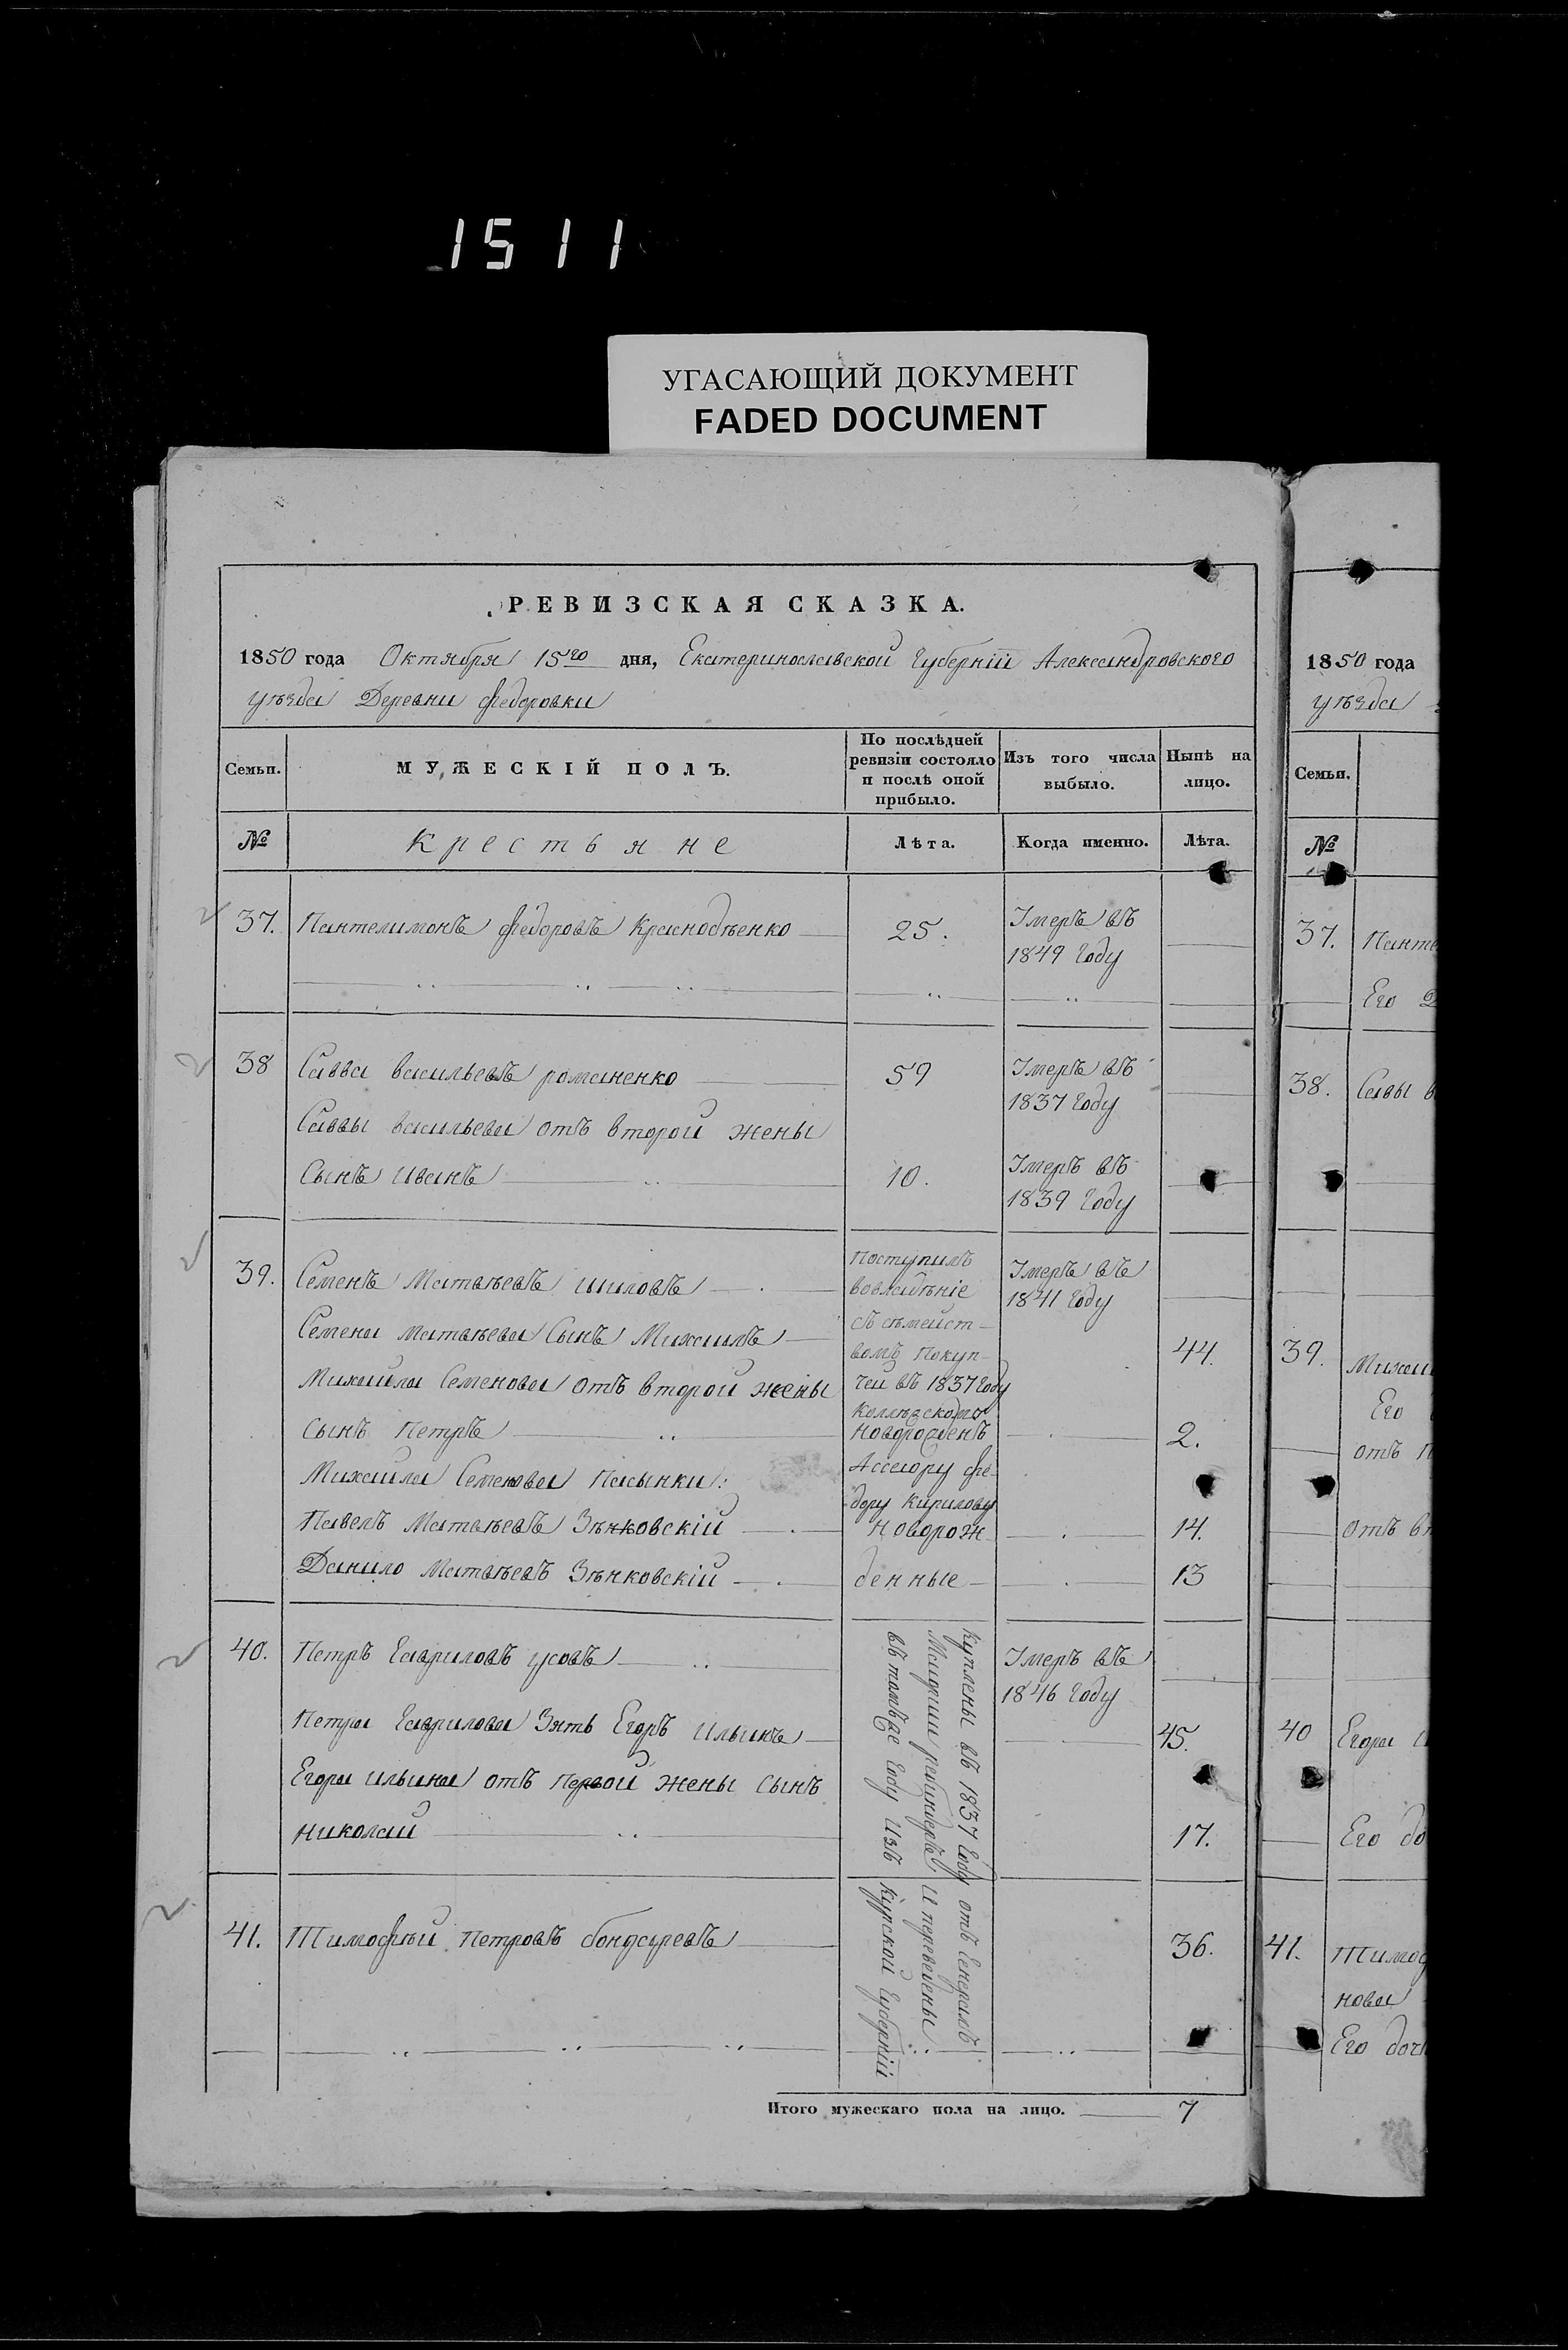 1511
УГАСАЮЩИЙ ДОКУМЕНТ
FADED DOCUMENT
РЕВИЗСКАЯ СКАЗКА.
1850 года Октября 15го дня, Екатеринославской Губерніи Александровского
уѣзда Деревни Федоровки
Семьи.
МУЖЕСКІЙ ПОЛЪ.
По послѣдней
ревизіи состояло
и послѣ оной
прибыло.
Изъ того числа
выбыло.
Нынѣ на
лицо.
№
Крестьяне
Лѣта.
Когда именно.
Лѣта.
37. Пантелимонъ Федоровъ Краснодѣенко 25. Умеръ въ
1849 Году
38 Савва васильевъ романенко 59 Умеръ въ
1837 Году
Саввы васильева отъ второй жены
Сынъ иванъ 10. Умеръ въ
1839 Году
39. Семенъ Матвѣевъ шиловъ
Умеръ въ
1841 Году
Семена матвѣева Сынъ Михаилъ 44.
Михайла Семенова отъ второй жены
сынъ Петръ новорожденъ 2.
Михаила Семенова Пасынки:
Павелъ Матвѣевъ Зѣнковскій новорож 14.
Данило Матвѣевъ Зѣнковскій денные 13
Поступилъ
вовладѣніе
съ сѣмейст-
вомъ Покуп-
чей въ 1837 Году
Коллѣзскому
Ассесору Фе-
дору Кирилову
40. Петръ Гавриловъ усовъ Умеръ въ
1846 Году
Петра Гаврилова Зять Егоръ Ильинъ 45.
Егора ильина отъ первой жены сынъ
николай 17.
41. Тимофѣй Петровъ бондаревъ 36.
Куплены въ 1837 Году отъ Генералъ
Маіорши ребиндеръ И переведены:
въ томъже Году Изъ Курской Губерніи
Итого мужескаго пола на лицо. 7
1850 года
уѣзда
Семьи.
№
37. Панте
Его
38. Савы в
39. Михаи
Его
отъ п
отъ в
40 Егора и
Его до
41. Тимоф
нова
Его доч